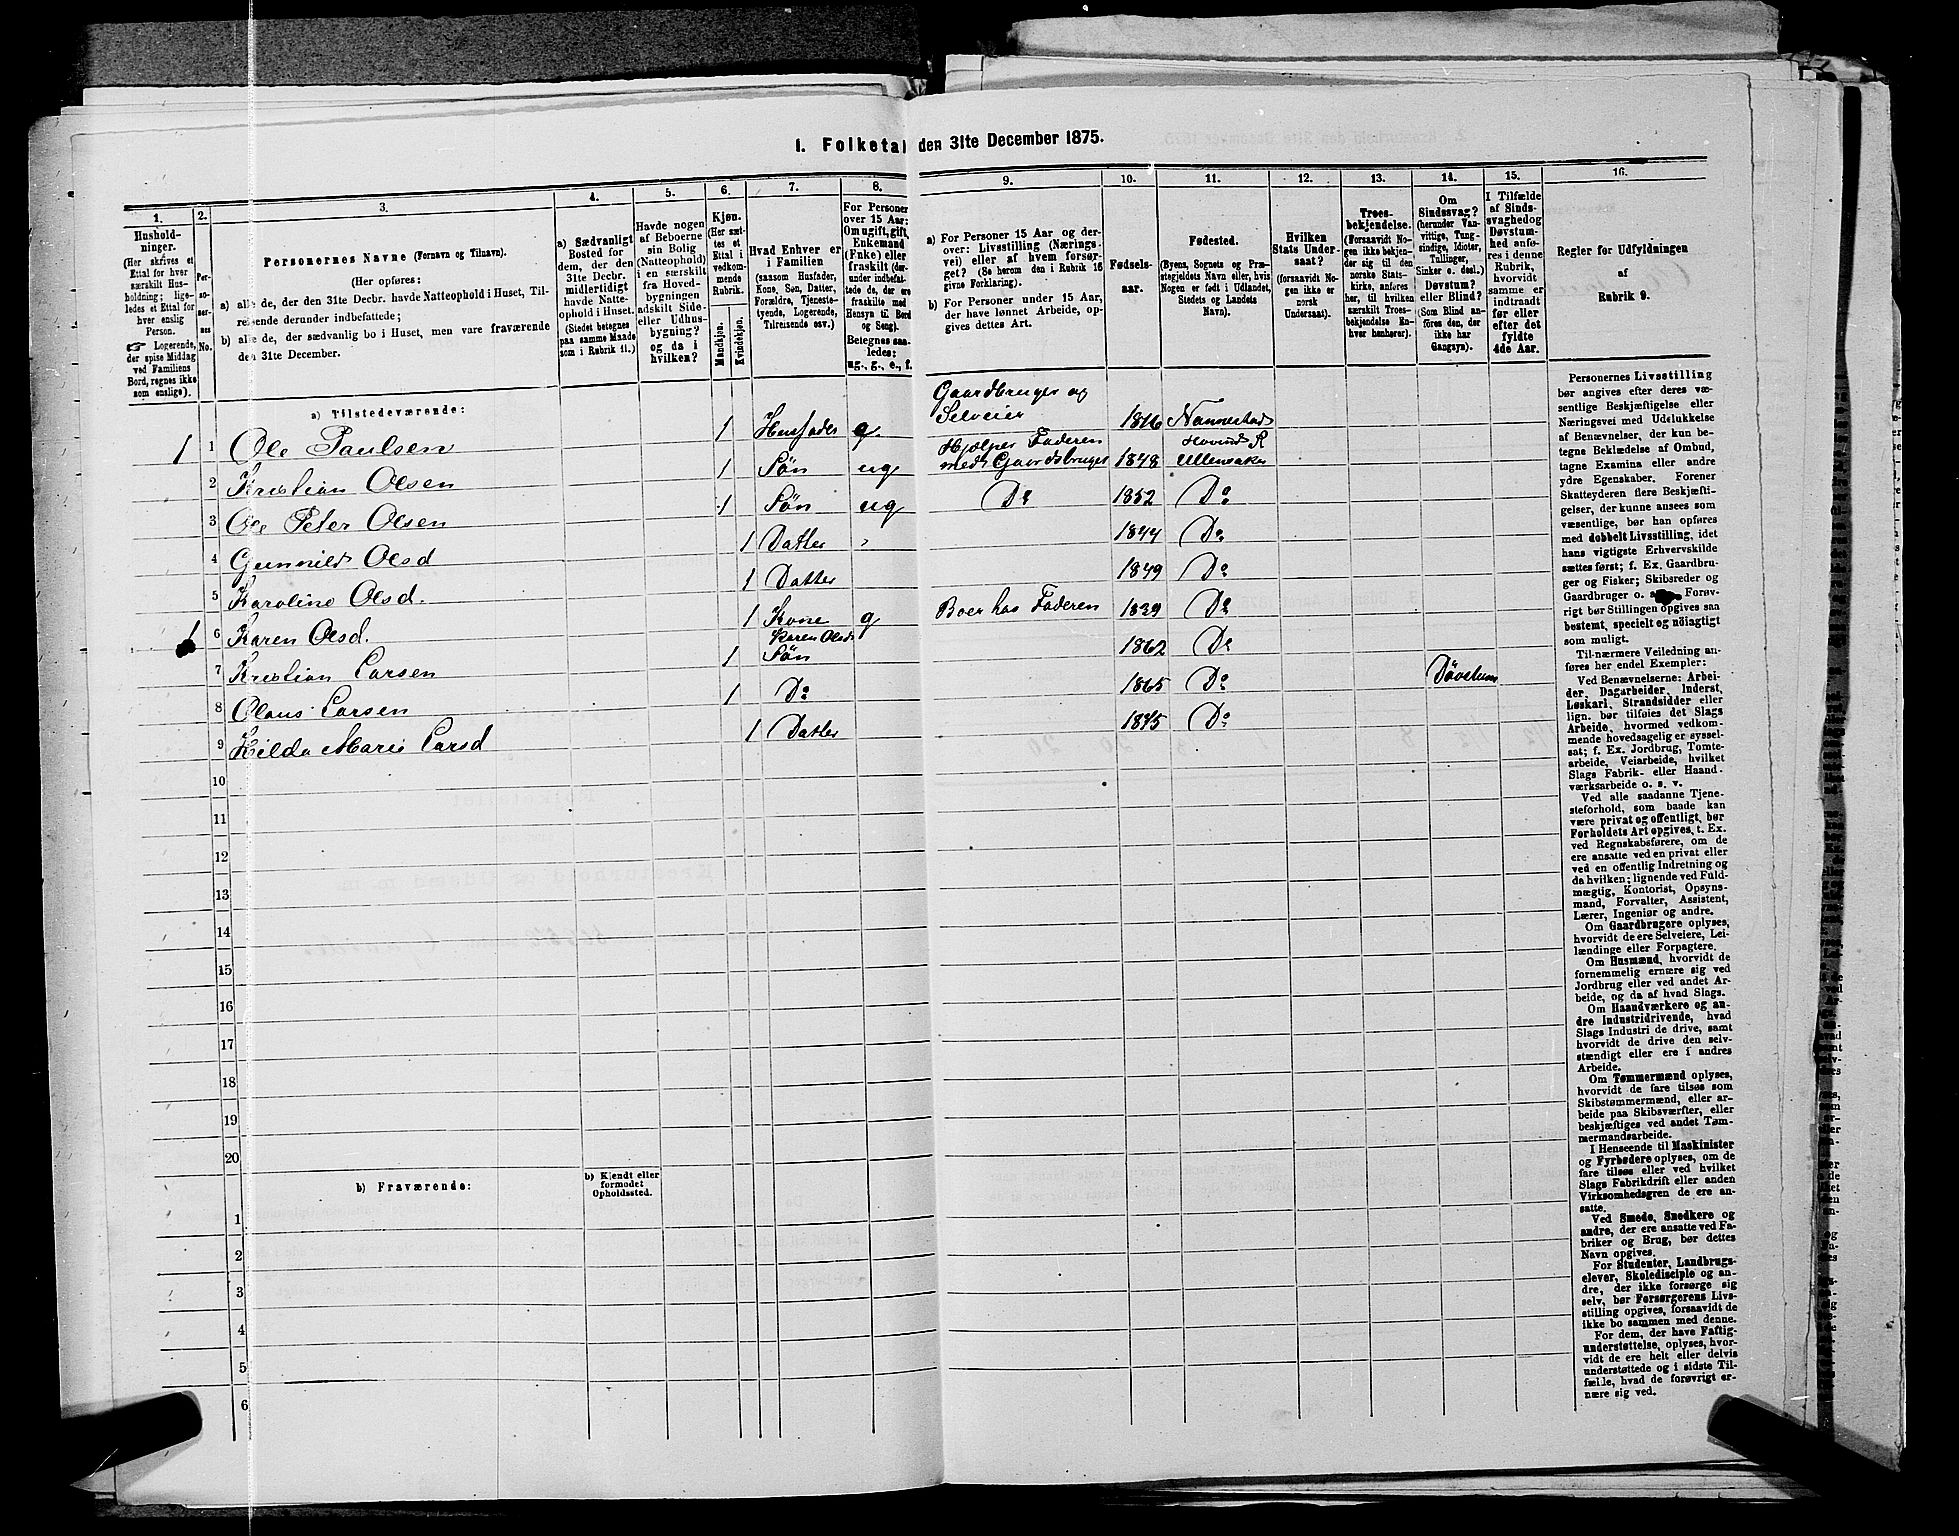 1. Folketal den 31te December 1875.
1.
Hushold-
ninger.
(Her skrives et
Ettal for hver
særskilt Hus-
holdning; lige-
ledes et Ettal for
hver enslig
Person.
☞ Logerende,
der spise Middag
ved Familiens
Bord, regnes ikke
som enslige).
2.
Per-
so-
ner-
nes
No.
3.
Personernes Navne (Fornavn og Tilnavn).
(Her opføres:
a) alle de, der den 31te Decbr. havde Natteophold i Huset, Til-
reisende derunder indbefattede;
b) alle de, der sædvanlig bo i Huset, men vare fraværende
den 31te December.
4.
a) Sædvanligt
Bosted for
dem, der den
31te Decbr.
midlertidigt
havde Natte-
ophold i Huset.
(Stedet betegnes
paa samme Maade
som i Rubrik 11.)
5.
Havde nogen
af Beboerne
sin Bolig
(Natteophold)
i en særskilt
fra Hoved-
bygningen
adskilt Side-
eller Udhus-
bygning?
og da i
hvilken?
6.
Kjøn.
(Her sæt-
tes et
Ettal i
vedkom-
mende
Rubrik.
Mandkjøn.
Kvindekjøn.
7.
Hvad Enhver er
i Familien
(saasom Husfader,
Kone, Søn, Datter,
Forældre, Tjeneste-
tyende, Logerende,
Tilreisende osv.)
8.
For Personer
over 15 Aar:
Om ugift, gift,
Enkemand
(Enke) eller
fraskilt (der-
under indbefat-
tede de, der ere
fraskilte med
Hensyn til Bord
og Seng).
Betegnes saa-
ledes:
ug., g., e., f.
9.
a) For Personer 15 Aar og der-
over: Livsstilling (Nærings-
vei) eller af hvem forsør-
get? (Se herom den i Rubrik 16
givne Forklaring).
b) For Personer under 15 Aar,
der have lønnet Arbeide, op-
gives dettes Art.
10.
Fødsels-
aar.
11.
Fødested.
(Byens, Sognets og Præ-
stegjeldets Navn eller, hvis
Nogen er født i Udlandet,
Stedets og Landets
Navn).
12.
Hvilken
Stats Under-
saat?
(forsaavidt No-
gen ikke er
norsk
Undersaat).
13.
Troes-
bekjendelse.
(Forsaavidt No-
gen ikke bekjen-
der sig til den
norske Stats-
kirke, anføres
her, til hvilken
særskilt Troes-
bekjendelse En-
hver henhører).
14.
Om
Sindssvag?
(herunder Van-
vittige, Tung-
sindige, Idioter,
Tullinger,
Sinker o. desl.)
Døvstum?
eller Blind?
(Som Blind an-
føres den, der
ikke har
Gangsyn).
15.
I Tilfælde
af Sinds-
svaghed og
Døvstum-
hed anfø-
res i denne
Rubrik,
hvorvidt
samme er
indtraadt
før eller
efter det
fyldte
4de Aar.
16.
Regler for Udfyldningen
af
Rubrik 9.
a) Tilstedeværende:
1 1 Ole Paulsen 1 Husfader g. Gaardbruger og Selveier 1816 Nannestad
2 Kristian Olsen 1 Søn ug Hjælper Faderen med Gaardsbruget 1848 Hovind S. Ullensaker
3 Ole Peter Olsen 1 Søn ug Do 1852 Do
4 Gunnild Olsd 1 Datter 1844 Do
5 Karoline Olsd. 1 Datter 1849 Do
1 6 Karen Olsd. 1 Kone g Boer hos Faderen 1839 Do
7 Kristian Larsen 1 Karen Olsds Søn 1862 Do
8 Olaus Larsen 1 Do 1865 Do Døvstum
9 Hilda Marie Larsd 1 Datter 1875 Do
10
11
12
13
14
15
16
17
18
19
20
b) Fraværende:
b) Kjendt eller
formodet
Opholdssted.
1
2
3
4
5
6
Personernes Livsstilling
bør angives efter deres væ-
sentlige Beskjæftigelse eller
Næringsvei med Udslukkelse
af Benævnelser, der kun be-
tegne Beklædelse af Ombud,
tagne Examina eller andre
ydre Egenskaber. Forener
Skatteyderen flere Beskjæfti-
gelser, der kunne ansees som
væsentlige, bør han opføres
med dobbelt Livsstilling, idet
hans vigtigste Erhvervskilde
sættes først; f. Ex. Gaardbru-
ger og Fisker; Skibsreder og
Gaardbruger o. Forøv-
rigt bør Stillingen opgives saa
bestemt, specielt og nöiagtigt
som muligt.
Til nærmere Veiledning an-
føres her endel Exempler:
Ved Benævnelserne: Arbei-
der, Dagarbeider, Inderst,
Løskarl, Strandsidder eller
lign. bør tilføies det Slags
Arbeide, hvormed vedkom-
mende hovedsagelig er syssel-
sat; f. Ex. Jordbrug, Tomte-
arbeide, Veiarbeide, hvilket
Slags Fabrik- eller Haand-
værksarbeide o. s. v.
Ved alle saadanne Tjene-
steforhold, som baade kan
være privat og offentligt, bør
Forholdets Art opgives, t. Ex.
ved Regnskabsførere, om de
ere ansatte ved en privat eller
ved en offentlig Indretning og
da hvilken; lignende ved Fuld-
mægtig, Kontorist, Opsyns-
mand, Forvalter, Assistent,
Lærer, Ingeniør og andre.
Om Gaardbrugere oplyses,
hvorvidt de ere Selveiere, Lei-
lændinge eller Forpagtere.
Om Husmænd, hvorvidt de
fornemmelig ernære sig ved
Jordbrug eller ved andet Ar-
beide, og da af hvad Slags.
Om Haandværkere og an-
dre Industridrivende, hvad
Slags Industri de drive, samt
hvorvidt de drive den selv-
stændigt eller ere i andres
Arbeide.
Om Tømmermænd oplyses,
hvorvidt de fare tilsøs som
Skibstømmermænd, eller ar-
beide paa Skibsværfter, eller
beskjæftiges ved andet Tøm-
mermandsarbeide.
I Henseende til Maskinister
og Fyrbødere oplyses, om de
fare tilsøs eller ved hvilket
Slags Fabrikdrift eller anden
Virksomhedsgren de ere an-
satte.
Ved Smede, Snedkere og
andre, der ere ansatte ved Fa-
briker og Brug, bør dettes
Navn opgives.
For Studenter, Landbrugs-
elever, Skoledisciple og an-
dre, der ikke forsørge sig
selv, bør Forsørgerens Livs-
stilling opgives, forsaavidt de
ikke bo sammen med denne.
For dem, der have Fattig-
understøttelse, oplyses, hvor-
vidt de ere helt eller delvis
understøttede og i sidste Til-
fælde, hvad de forøvrigt er-
nære sig ved.